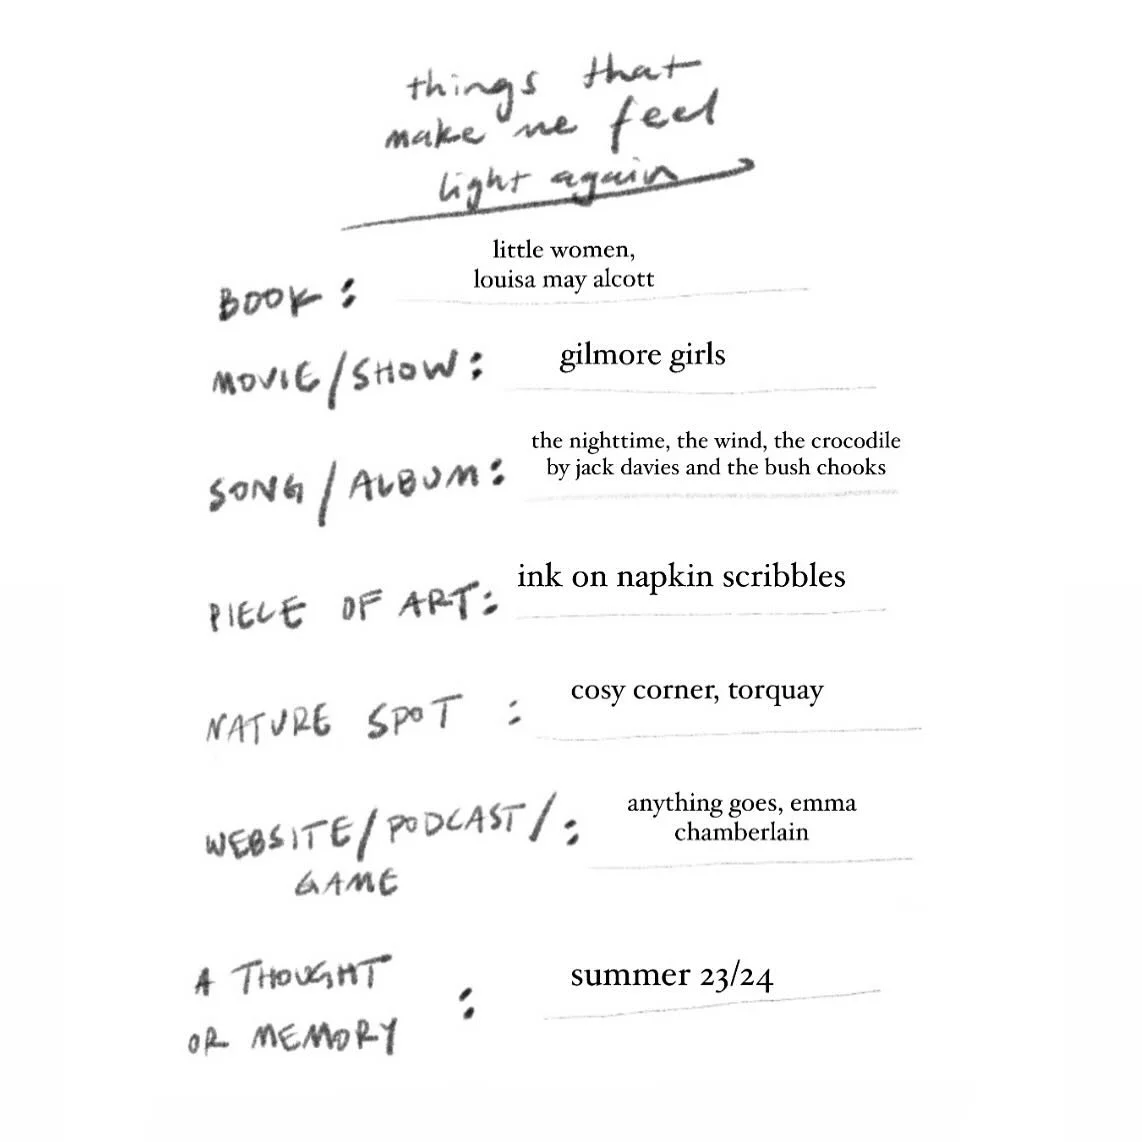 things that
make me feel
light again
little women,
louisa may alcott
BOOK:
MOVIE/SHOW: gilmore girls
the nighttime, the wind, the crocodile
by jack davies and the bush chooks
SONG/ALBUM:
PIECE OF ART: ink on napkin scribbles
NATURE SPOT : cosy corner, torquay
anything goes, emma
chamberlain
WEBSITE/PODCAST/:
GAME
A THOUGHT
OR MEMORY : summer 23/24